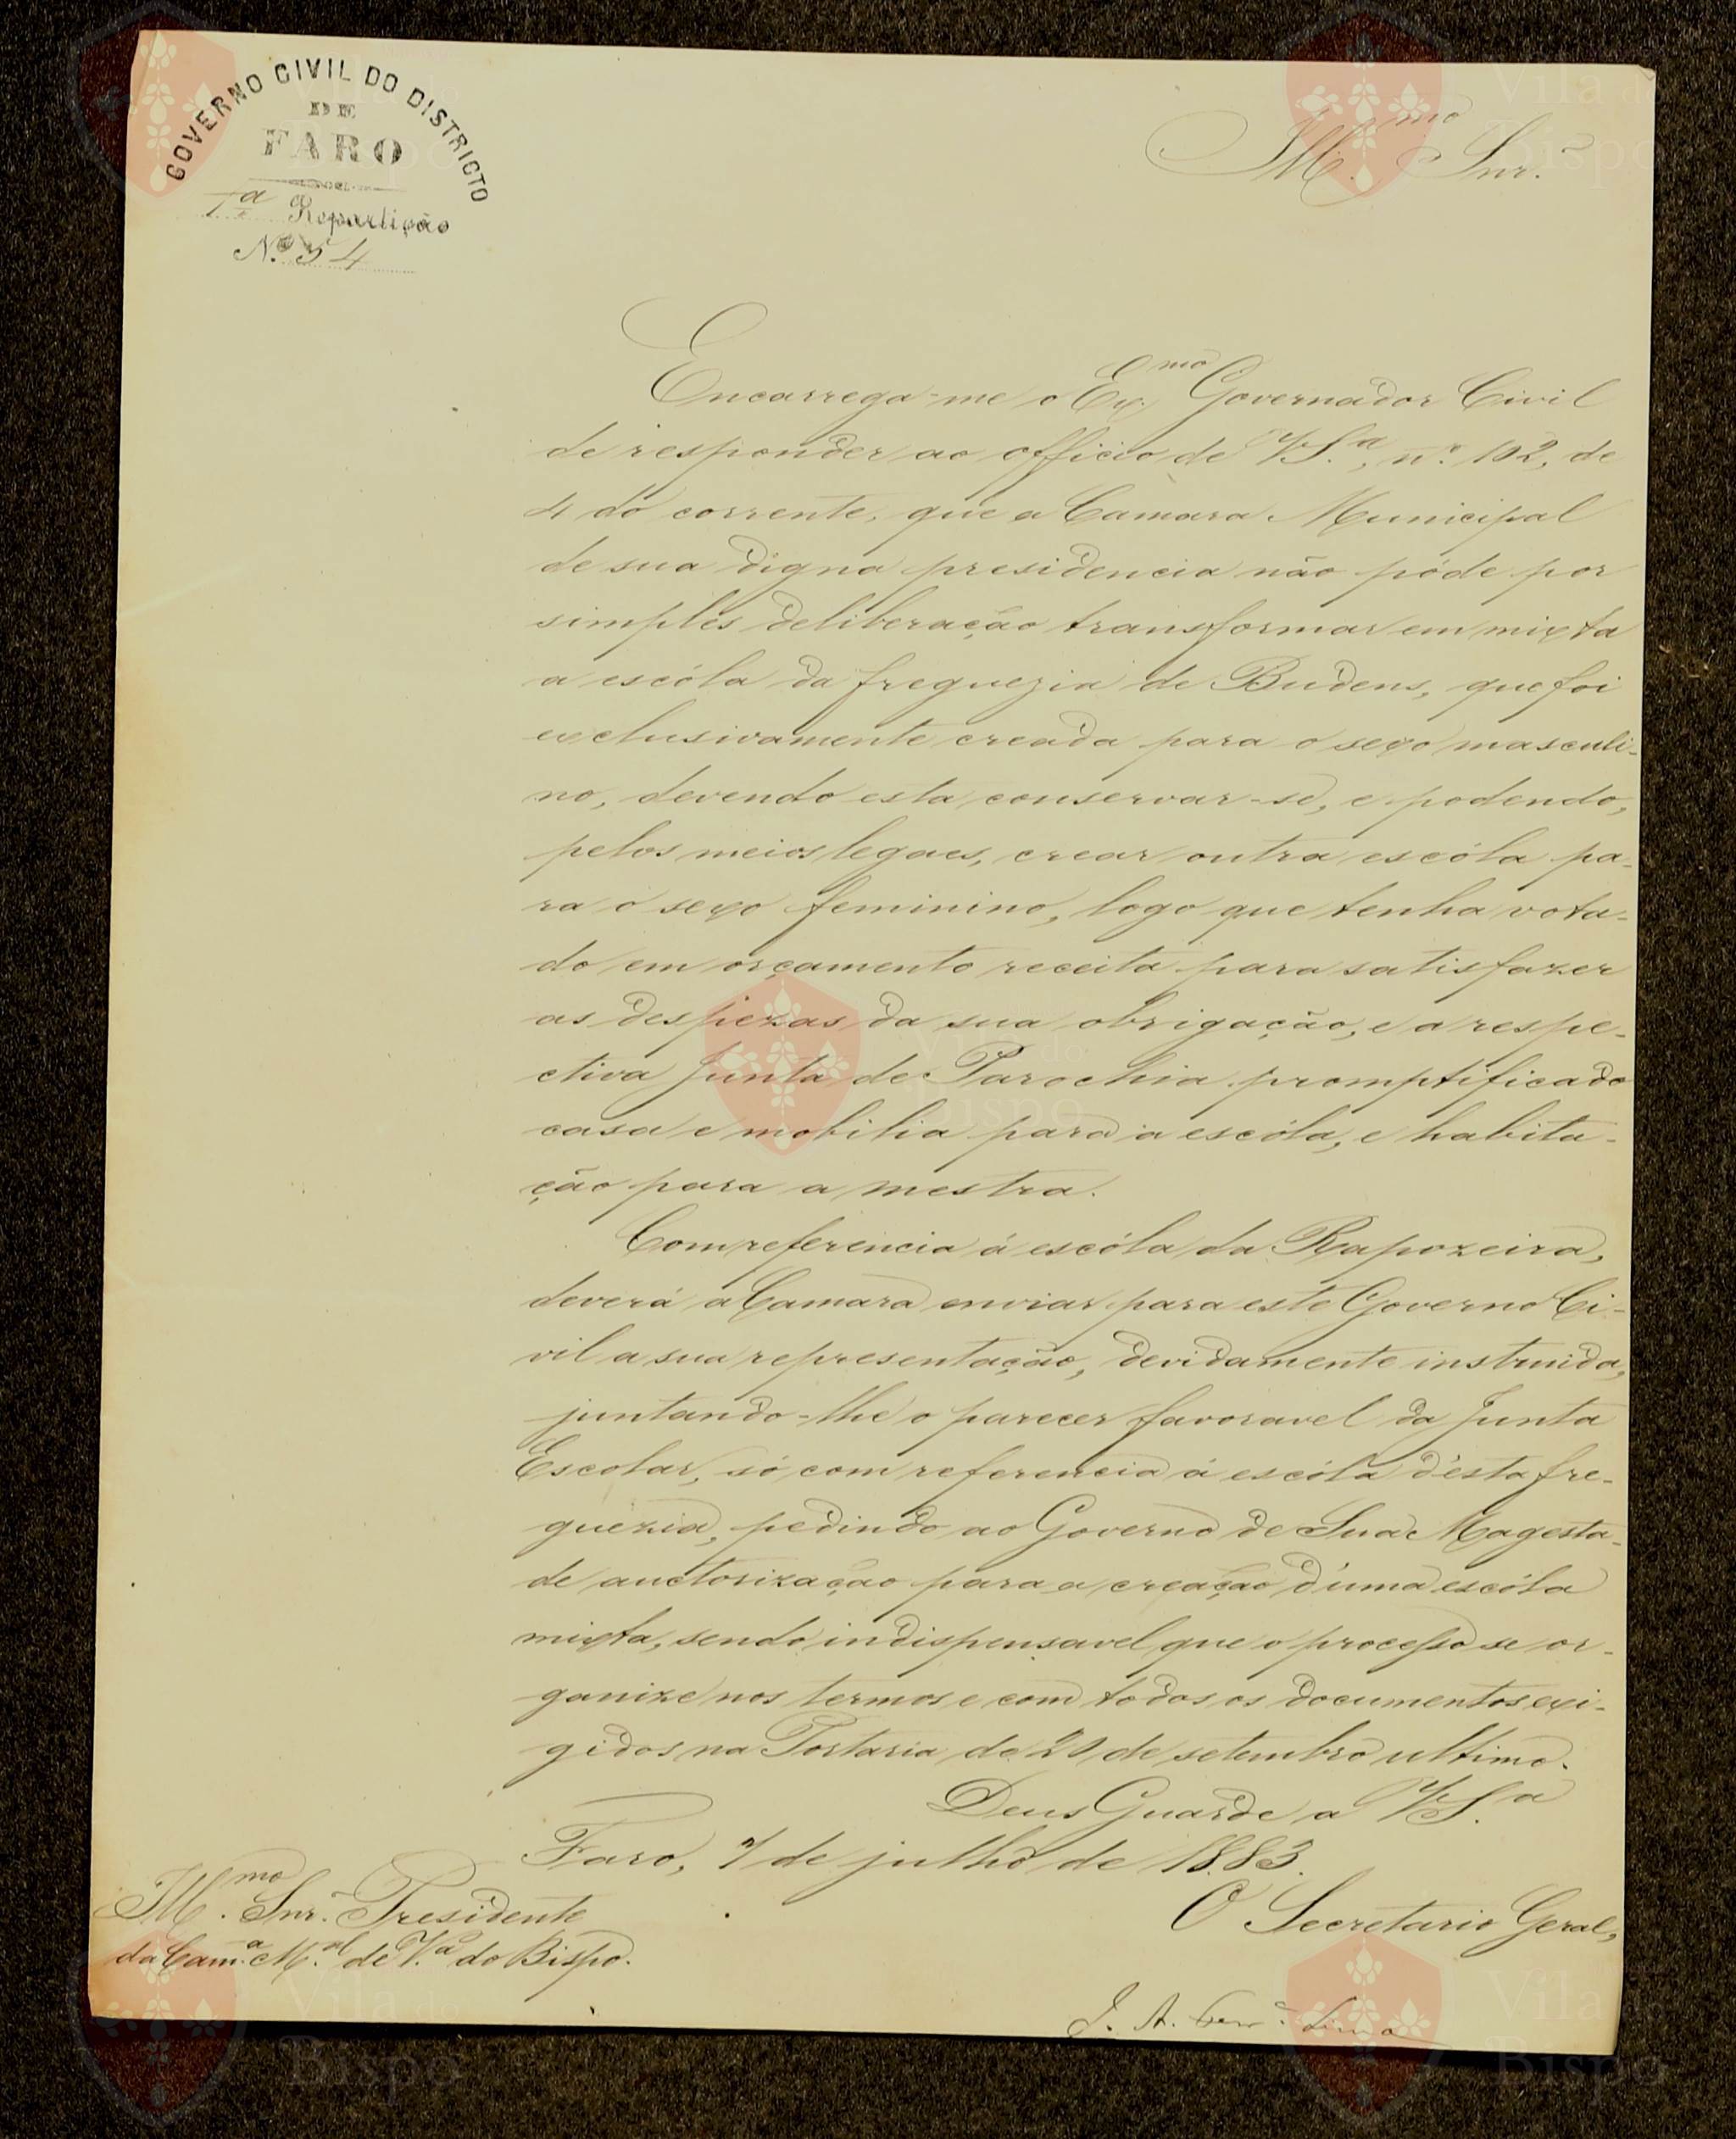 GOVERNO CIVIL DO DISTRICTO
DE
FARO
1.ª Repartição
N.º 54
Ill.mo Snr.
Encarrega-me o Ex.mo Governador Civil
de responder ao officio de V.S.ª, n.º 102, de
4 do corrente, que a Camara Municipal
de sua digna presidencia não póde por
simples deliberação transformar em mixta
a escóla da freguezia de Budens, que foi
exclusivamente creada para o sexo masculi-
no, devendo esta conservar-se, e podendo,
pelos meios legaes, crear outra escóla pa-
ra o sexo feminino, logo que tenha vota-
do em orçamento receita para satisfazer
as despezas da sua obrigação, e a respe-
ctiva Junta de Parochia promptificado
casa e mobilia para a escóla, e habita-
ção para a mestra.
Com referencia á escóla da Rapozeira,
deverá a Camara enviar para este Governo Ci-
vil a sua representação, devidamente instruida,
juntando-lhe o parecer favoravel da Junta
Escolar, só com referencia á escóla d'esta fre-
guezia, pedindo ao Governo de Sua Magesta-
de auctorização para a creação d'uma escóla
mixta, sendo indispensavel que o processo se or-
ganize nos termos e com todos os documentos exi-
gidos na Portaria de 20 de setembro ultimo.
Deus Guarde a V.S.ª
Faro, 7 de julho de 1883.
O Secretario Geral,
Ill.mo Snr. Presidente
da Cam.ª M.al de V.ª do Bispo.
J. A. Lima
Vila do
Bispo